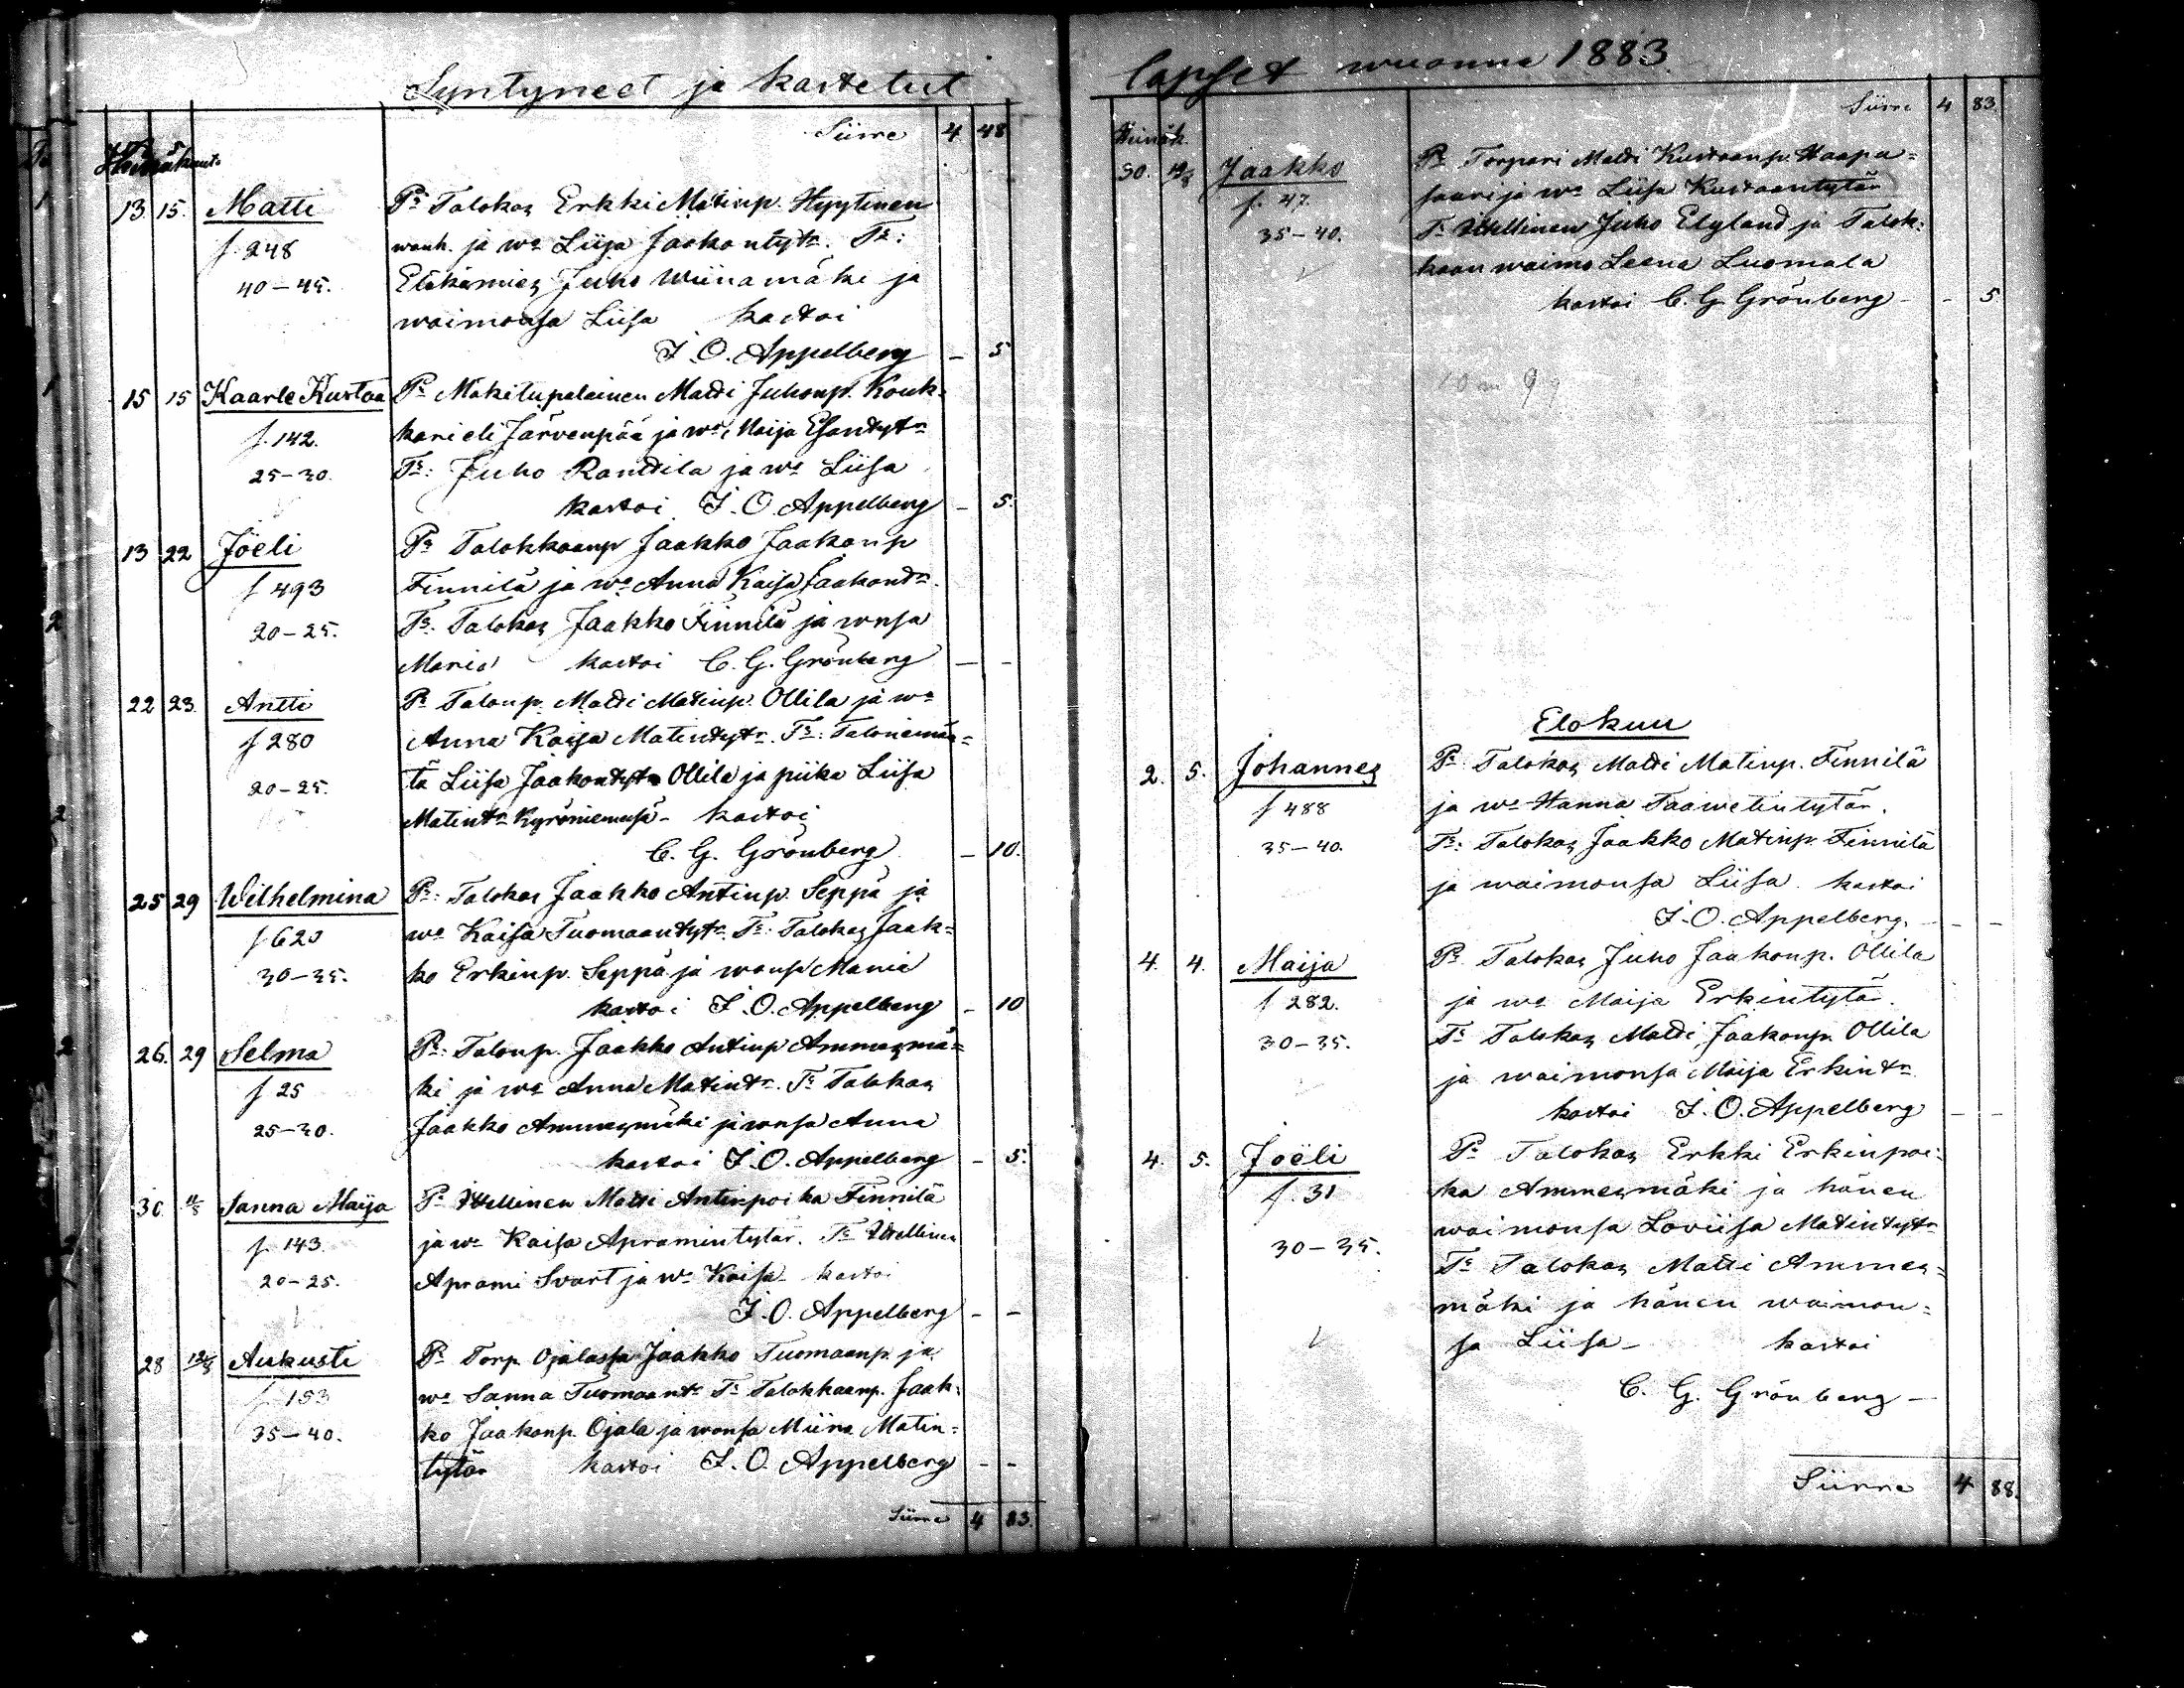 Syntyneet ja kastetut
Siirre 4 48
Heinäkuu
13. 15. Matti Pr Talokas Erkki Matinp. Hyytinen
f. 248 wanh. ja wo Liisa Jaakontytr. Tr:
40-45. Eläkämies Juho Wiinamäki ja
waimonsa Liisa kastoi
J. O. Appelberg - 5
15 15 Kaarle Kustaa Pr Mäkitupalainen Matti Juhonp. Kouk-
f. 142. kari eli Järvenpää ja wo Maija Esantytr
25-30. Tr: Juho Ranttila ja wo Liisa
kastoi J. O. Appelberg - 5.
13 22 Joëli Pr Talokkaanp Jaakko Jaakonp
f 493 Finnilä ja wo Anna Kaisa Jaakontr.
20-25. Tr. Talokas Jaakko Finnilä ja wnsa
Maria kastoi C. G. Grönberg - -
22 23. Antti Pr Talonp. Matti Matinp. Ollila ja wo
f 280 Anna Kaisa Matintytr. Tr: Taloniemän=
20-25. tä Liisa Jaakontytr Ollila ja piika Liisa
Matintr Kyröniemisä - kastoi
C. G. Grönberg - 10.
25 29 Wilhelmina Pr: Talokas Jaakko Antinp. Seppä ja
f 620 wo Kaisa Tuomaantytr. Tr: Talokas Jaak=
30-35. ko Erkinp. Seppä ja wonsa Maria
kastoi J. O. Appelberg - 10
26. 29 Selma Pr: Talonp. Jaakko Antinp Ammesmä=
f 25 ki ja wo Anna Matintr. Tr Talokas
25-30. Jaakko Ammesmäki ja wnsa Anna
kastoi J. O. Appelberg - 5.
30. Sanna Maija Pr Itsellinen Matti Antinpoika Finnilä
f. 143. ja wo Kaisa Apramintytär. Tr Itsellinen
20-25. Aprami Svart ja wo Kaisa kastoi
J. O. Appelberg - -
28 12/8 Aukusti Pr Torp. Ojalassa Jaakko Tuomaanp. ja
f. 153 wo Sanna Tuomaantr Tr Talokkaanp. Jaak=
35-40. ko Jaakonp. Ojala ja wonsa Miina Matin=
tytär kastoi J. O. Appelberg - -
Siirre 4 83.
lapset wuonna 1883.
Siirre 4 83.
Heinäk.
30. 12/8 Jaakko Pr Torpari Matti Kustaanp. Haapa=
f. 47. saari ja wo Liisa Kustaantytär
35-40. Tr Itsellinen Juho Elgland ja Talok=
kaan waimo Leena Luomala
kastoi C. G. Grönberg - - 5
Elokuu
2. 5. Johannes Pr Talokas Matti Matinp. Finnilä
f 488 ja wo Hanna Taawetintytär.
35-40. Tr: Talokas Jaakko Matinp. Finnilä
ja waimonsa Liisa. kastoi
J. O. Appelberg. - -
4. 4. Maija Pr Talokas Juho Jaakonp. Ollila
f 282. ja wo Maija Erkintytär.
30-35. Tr Talokas Matti Jaakonp. Ollila
ja waimonsa Maija Erkintr
kastoi J. O. Appelberg - -
4. 5. Joëli Pr Talokas Erkki Erkinpoi=
f. 31 ka Ammesmäki ja hänen
waimonsa Loviisa Matintytr
30-35. Tr Talokas Matti Ammes=
mäki ja hänen waimon=
sa Liisa - kastoi
C. G. Grönberg -
Siirre 4 88.